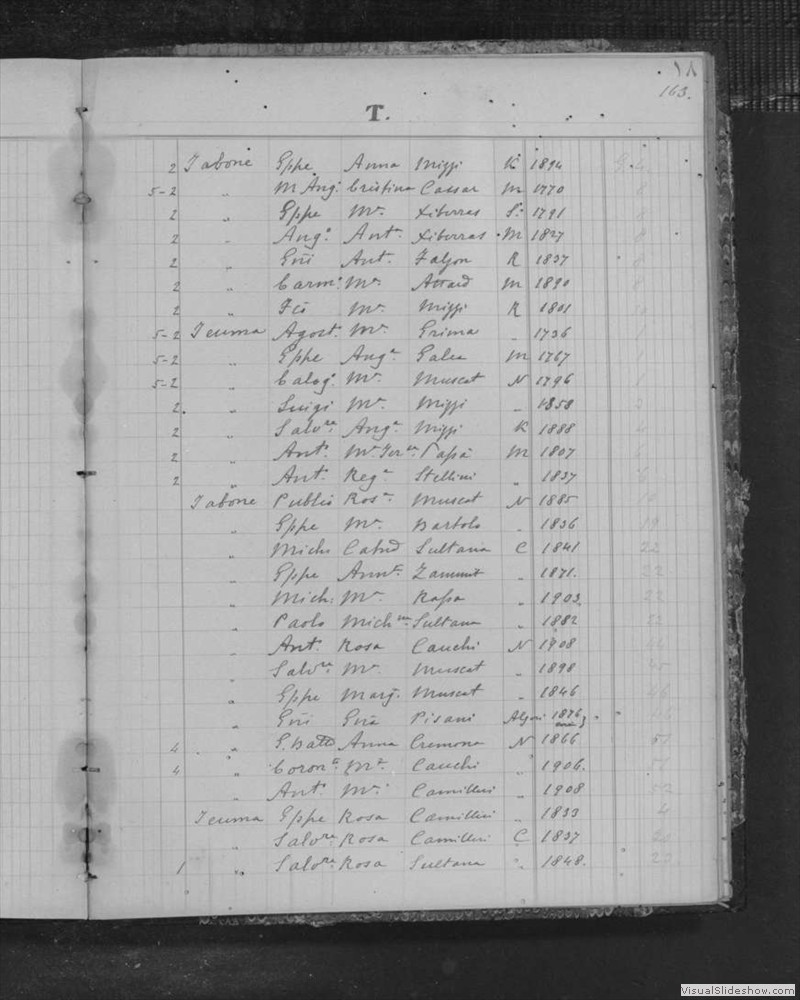 163.
T.
2 Tabone Gppe Anna Mizzi K 1894
5-2 " M. Ang. Cristina Cassar M 1770 8
2 " Gppe Ma. Xiberras S. 1791 8
2 " Ango Anta. Xiberras M 1827 8
2 " Gni Ant. Falzon R 1837 8
2 " Carmo. Ma. Attard M 1890 8
2 " Fco Ma. Mizzi R 1801
5-2 Teuma Agost. Ma. Grima " 1736
5-2 " Gppe Anga Galea M 1767 1
5-2 " Calog. Ma. Muscat N 1796 1
2. " Luigi Ma. Mizzi " 1858
2 " Salvre. Anga Mizzi K 1888
2 " Anto. Ma. Papa M 1807
2 " Ant. Rega Stellini " 1837
Tabone Publio Rosa Muscat N 1885
" Gppe Ma. Bartolo " 1836
" Mich Sultana C 1841 22
" Gppe Annta. Zammit " 1871. 22
" Mich: Ma. " 1903. 22
" Paolo Sultana " 1882 22
" Ant. Rosa Cauchi N 1908
" Salvre Ma. Muscat " 1898
" Gppe Marg. Muscat " 1846
" Gni Gia Pisani 1876
4 " G. Batta Anna Cremona N 1866 51
4 " Coron. Ma. Cauchi " 1906. 51
" Ant. Ma. Camilleri " 1908 52
Teuma Gppe Rosa Camilleri " 1833 4
" Salvre Rosa Camilleri C 1837 20
1 " Salvre Rosa Sultana " 1848. 23
VisualSlideshow.com